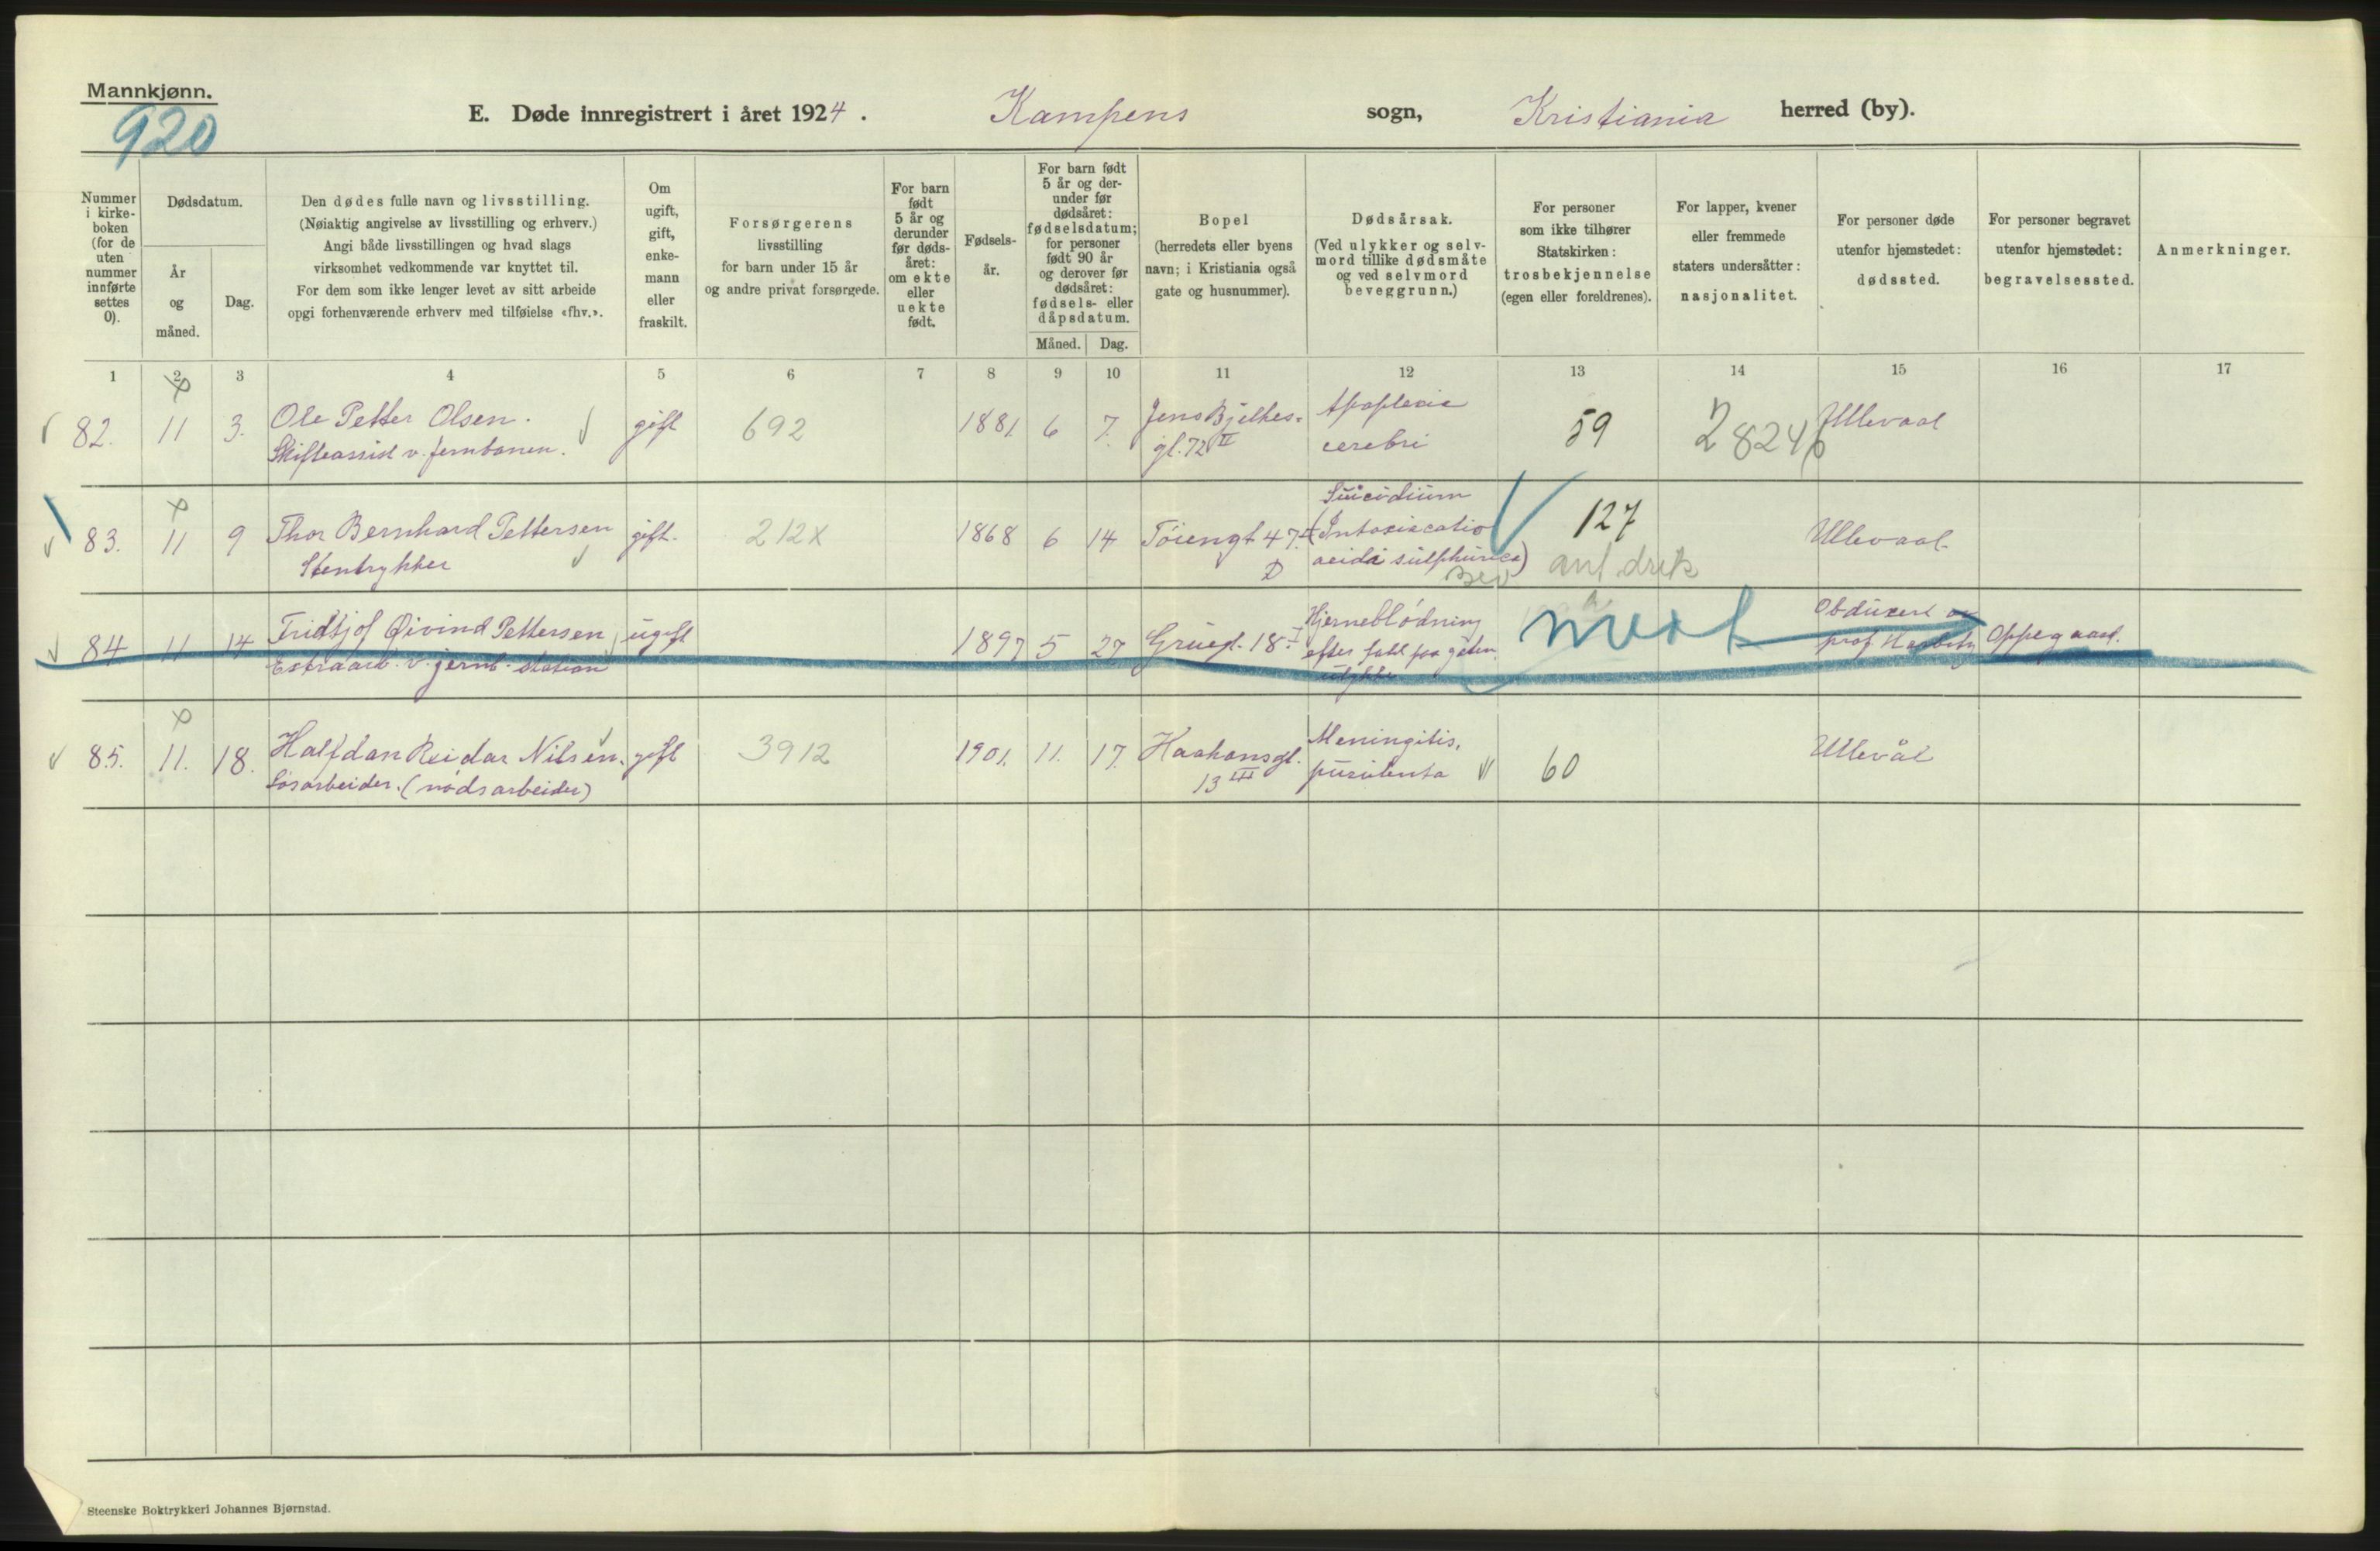 Mannkjønn.
920
E. Døde innregistrert i året 1924. Kampens sogn, Kristiania herred (by).
Nummer i kirke- boken (for de uten nummer innførte settes 0).
Dødsdatum.
År og måned.
Dag.
Den dødes fulle navn og livsstilling.
(Nøiaktig angivelse av livsstilling og erhverv.)
Angi både livsstillingen og hvad slags
virksomhet vedkommende var knyttet til.
For dem som ikke lenger levet av sitt arbeide
opgi forhenværende erhverv med tilføielse «fhv.».
Om ugift, gift, enke- mann eller fraskilt.
Forsørgerens
livsstilling
for barn under 15 år
og andre privat forsørgede.
For barn født 5 år og derunder før døds- året: om ekte eller uekte født.
Fødsels- år.
For barn født 5 år og der- under før dødsåret: fødselsdatum; for personer født 90 år og derover før dødsåret: fødsels- eller dåpsdatum.
Måned.
Dag.
Bopel
(herredets eller byens
navn; i Kristiania også
gate og husnummer).
Dødsårsak.
(Ved ulykker og selv-
mord tillike dødsmåte
og ved selvmord
beveggrunn.)
For personer
som ikke tilhører
Statskirken:
trosbekjennelse
(egen eller foreldrenes).
For lapper, kvener
eller fremmede
staters undersåtter:
nasjonalitet.
For personer døde
utenfor hjemstedet:
dødssted.
For personer begravet
utenfor hjemstedet:
begravelsessted.
Anmerkninger.
1 2 3 4 5 6 7 8 9 10 11 12 13 14 15 16 17
82. 11 3. Ole Petter Olsen. gift 692 1881. 6 7. Jens Bjelkes- Apoplexia 59 28246 Ullevaal
Skifteassist v. jernbanen. gt. 72 II cerebri
83. 11 9 Thor Bernhard Pettersen gift. 212x 1868 6 14 Töiengt 47 Suicidium 127 Ullevaal.
Stentrykker (Intoxicatio
acidi sulphurica)
84 11 14 Fridtjof Øivind Pettersen ugift 1897 5 27 Gruegt. 18 I Hjerneblødning Obducert av Oppegaard.
Extraarb. v. jernb. station efter fald paa gaten. prof. Harbitz
ulykke
85. 11. 18. Halfdan Reidar Nilsen. gift 3912 1901. 11. 17. Haakonsgt. Meningitis, 60 Ullevål
Løsarbeider. (nødsarbeider) 13 III purulenta
Steenske Boktrykkeri Johannes Bjørnstad.